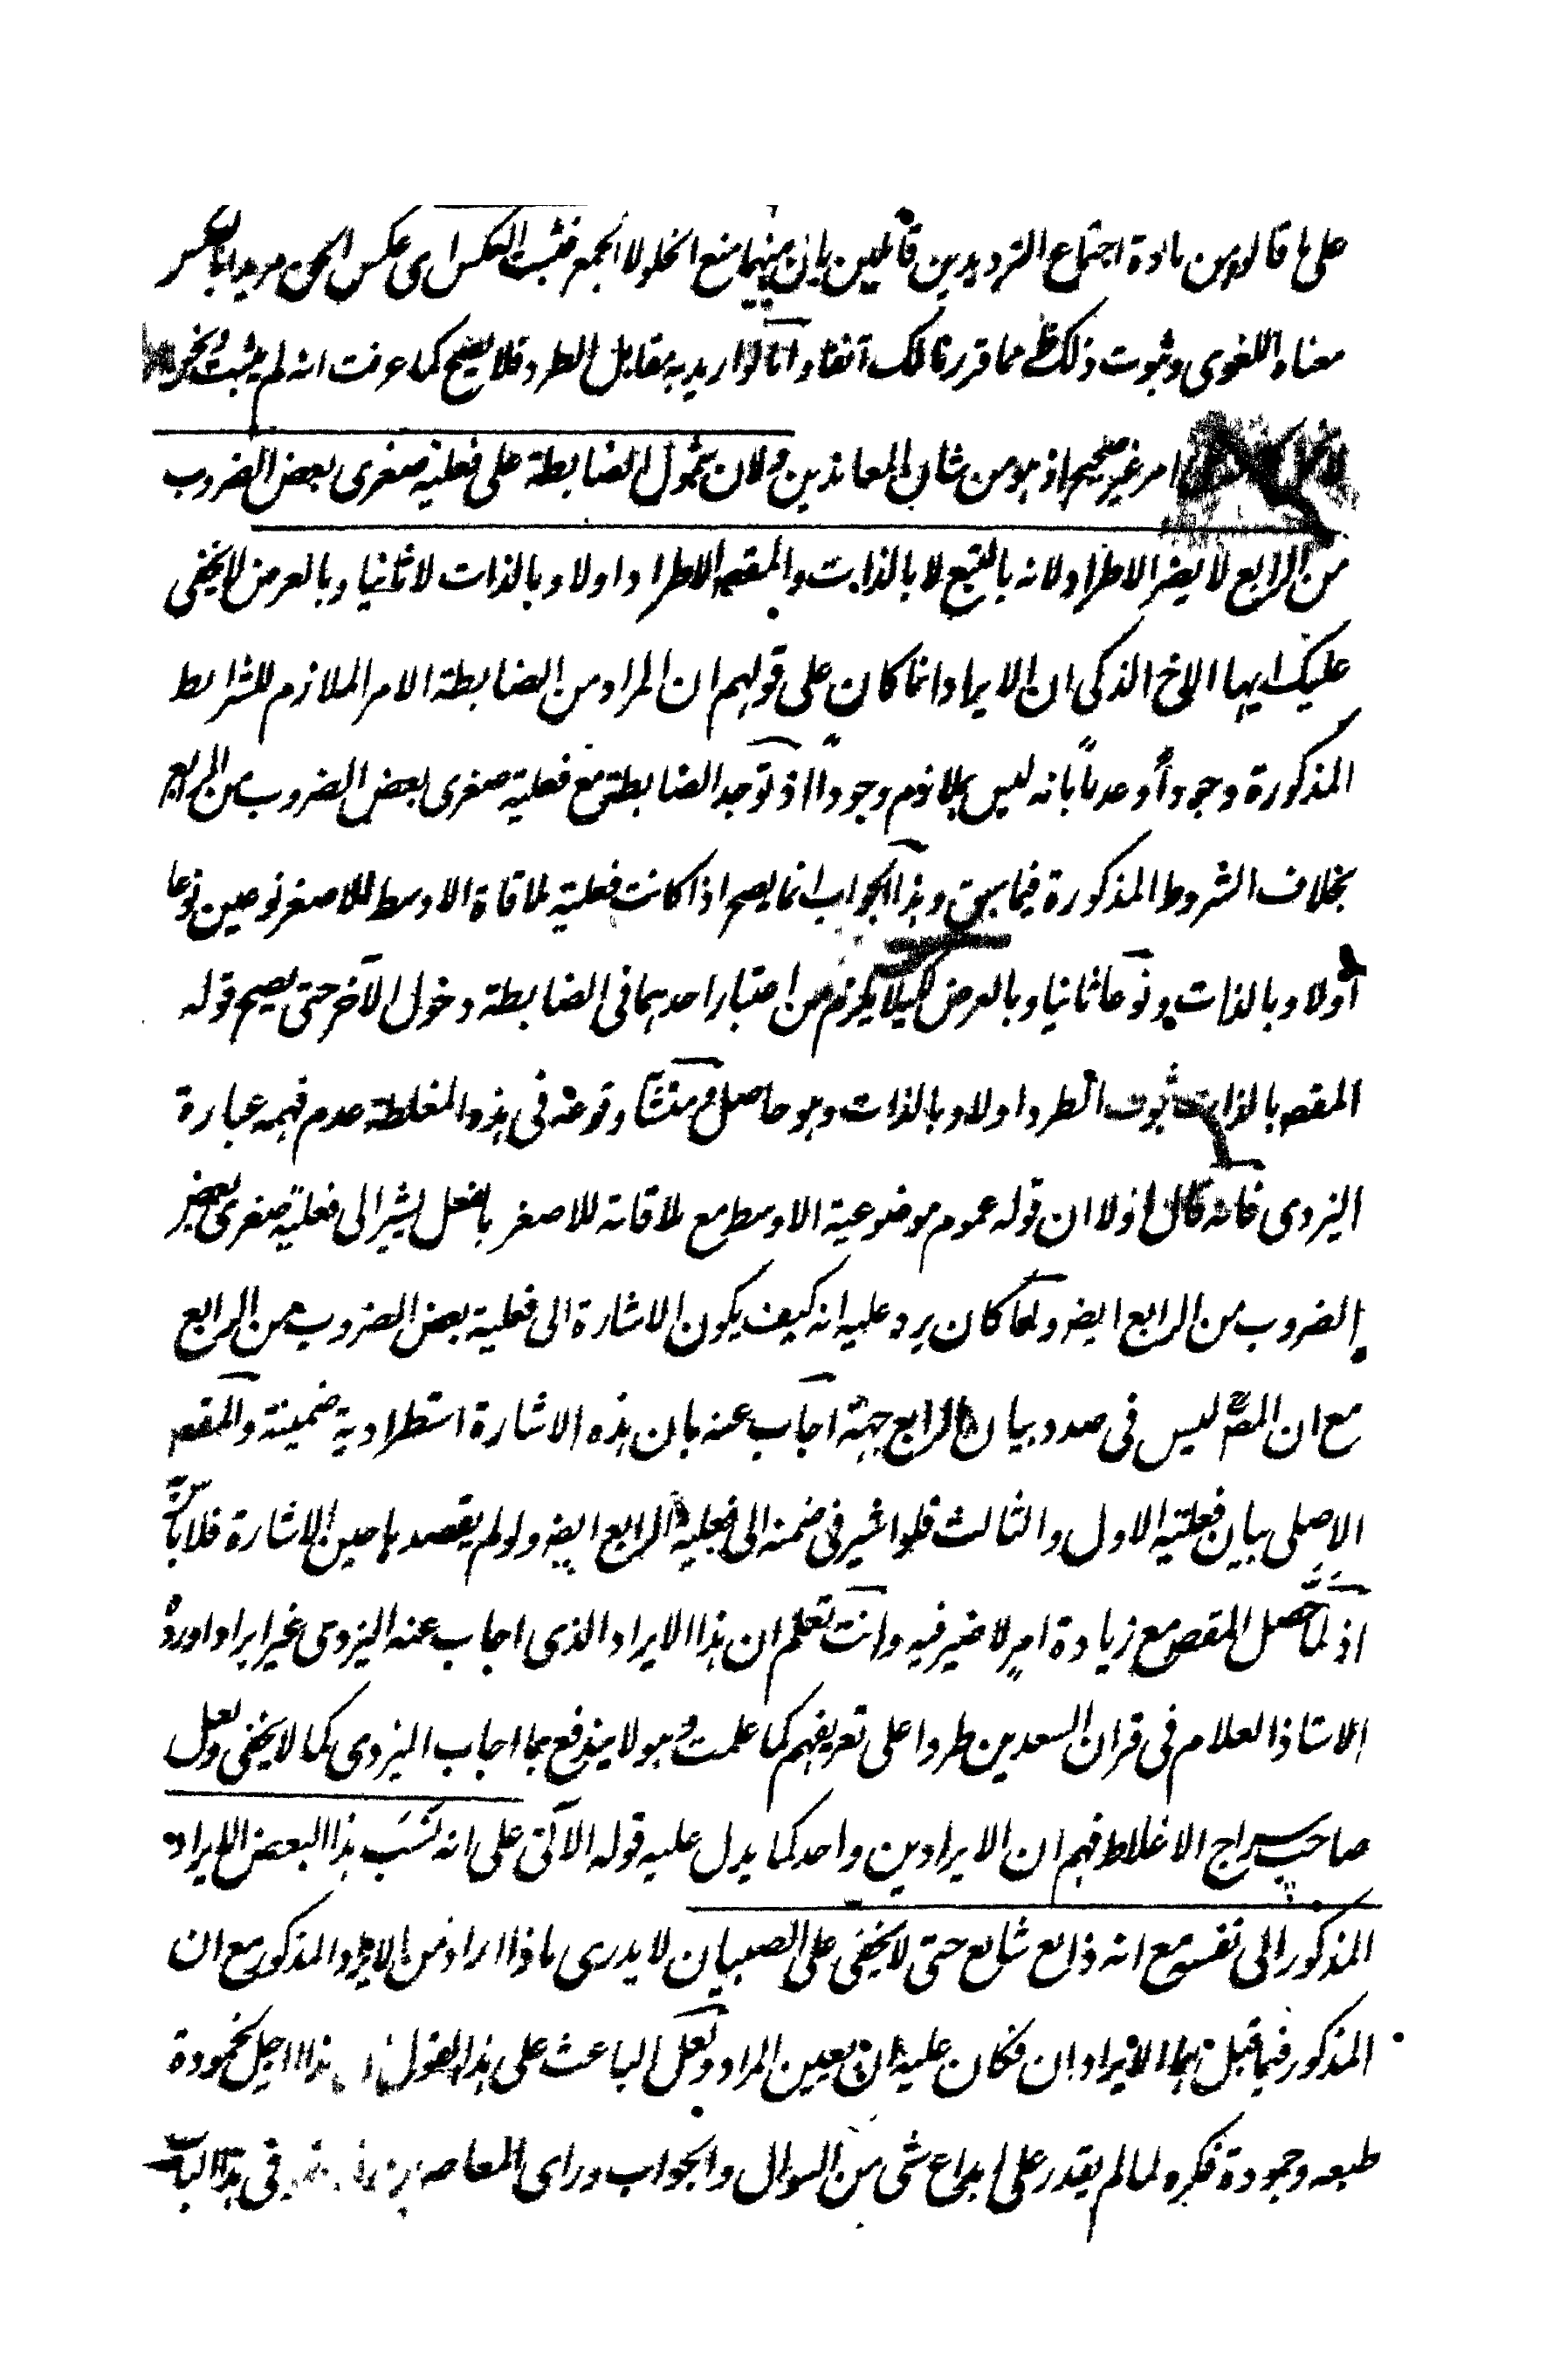 على ما قالوه من مادة اجتماع الترديدين قائلين بان بينهما منع الخلو لا الجمع فثبت العكس اى عكس الحن مريدا بالعكس
معناه اللغوى وثبوت ذلك ظ مما قررنا لك آنفا واما لو اريد به مقابل الطرد فلا يصح كما عرفت انه لم يثبت
امر غير صحيح اذ هو من شان المعاندين ولان شمول الضابطة على فعلية صغرى بعض الضروب
من الرابع لا يضر الاطراد لانه بالتبع لا بالذات والمقصد الاطراد اولا وبالذات لا ثانيا وبالعرض لا يخفى
عليك ايها الاخ الذكى ان الايراد انما كان على قولهم ان المراد من الضابطة الامر الملازم للشرايط
المذكورة وجوداً وعدماً بانه ليس بملازم وجوداً اذ توجد الضابطة مع فعلية صغرى بعض الضروب من الرابع
بخلاف الشروط المذكورة فيما سبق وهذا الجواب انما يصح اذا كانت فعلية ملاقاة الاوسط للاصغر نوعين نوعا
اولا وبالذات ونوعا ثانيا وبالعرض كيلا يلزم من اعتبار احدهما فى الضابطة دخول الآخر حتى يصح قوله
المقصد بالذات ثبوت الطرد اولا وبالذات وهو حاصل ومنشأ وقوعه فى هذه المغلطة عدم فهمه عبارة
اليزدى فانه قال اولا ان قوله عموم موضوعية الاوسط مع ملاقاته للاصغر بالفعل يشير الى فعلية صغرى بعض
الضروب من الرابع ايضه ولما كان يرد عليه انه كيف يكون الاشارة الى فعلية بعض الضروب من الرابع
مع ان المص ليس فى صدد بيان الرابع جهة اجاب عنه بان هذه الاشارة استطرادية ضمنية والمقصد
الاصلى بيان فعلية الاول والثالث فلو اشير فى ضمنه الى فعلية الرابع ايضه ولو لم يقصدها حين الاشارة فلا بأس
اذ لما حصل المقصد مع زيادة امر لا ضير فيه وانت تعلم ان هذا الايراد الذى اجاب عنه اليزدى غير ايراد اورده
الاستاذ العلام فى قران السعدين طردا على تعريفهم كما علمت وهو لا يندفع بما اجاب اليزدى كما لا يخفى ولعل
صاحب سراج الاغلاط فهم ان الايرادين واحد كما يدل عليه قوله الآتى على انه نسب هذا البعض الايراد
المذكور الى نفسه مع انه ذايع شايع حتى لا يخفى على الصبيان لا يدرى ماذا اراد من الايراد المذكور مع ان
المذكور فيما قبل هما الايرادان فكان عليه ان يعين المراد ولعل الباعث على هذا القول اجل لخمودة
طبعه وجمودة فكره لما لم يقدر على ابداع شى من السوال والجواب وراى المعاصرين فى هذا الباب